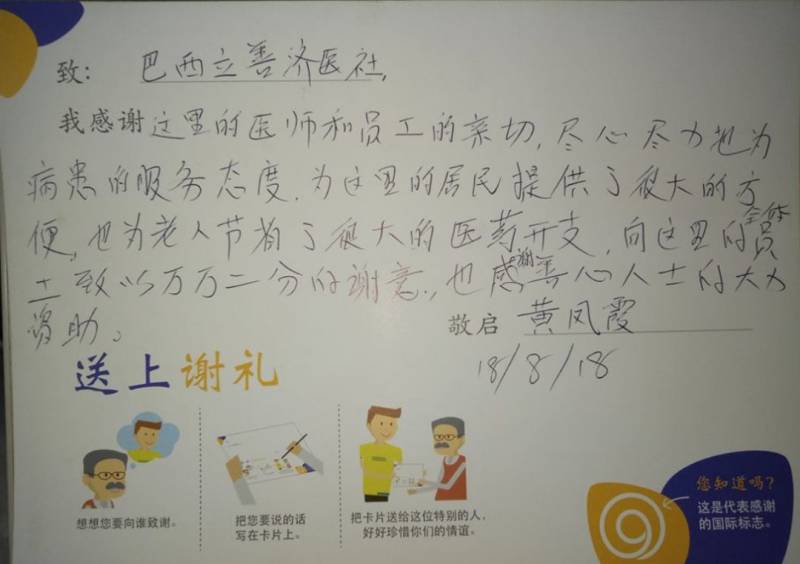 致: 巴西立善济医社,
我感谢这里的医师和员工的亲切,尽心尽力地为
病患的服务态度,为这里的居民提供了很大的方
便,也为老人节省了很大的医药开支,向这里的全体员
工致以万万二分的谢意,也感谢善心人士的大力
资助。
敬启 黄凤霞
18/8/18
送上谢礼
想想您要向谁致谢。
把您要说的话
写在卡片上。
把卡片送给这位特别的人,
好好珍惜你们的情谊。
您知道吗?
这是代表感谢
的国际标志。